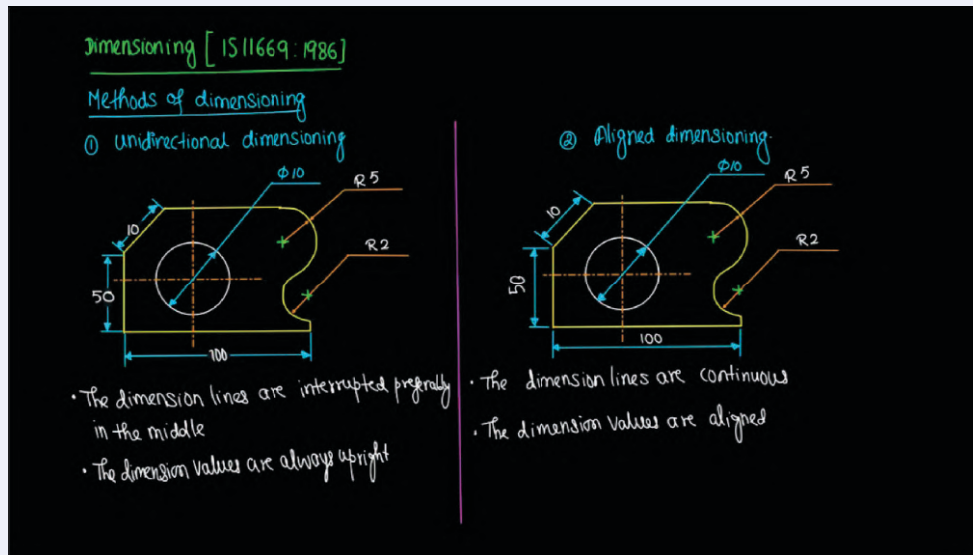 Dimensioning [IS11669:1986]
Methods of dimensioning
① Unidirectional dimensioning
Φ10
R5
10
R2
50
100
• The dimension lines are interrupted preferably
in the middle
• The dimension values are always upright
② Aligned dimensioning.
Φ10
R5
10
R2
50
100
• The dimension lines are continuous
• The dimension values are aligned